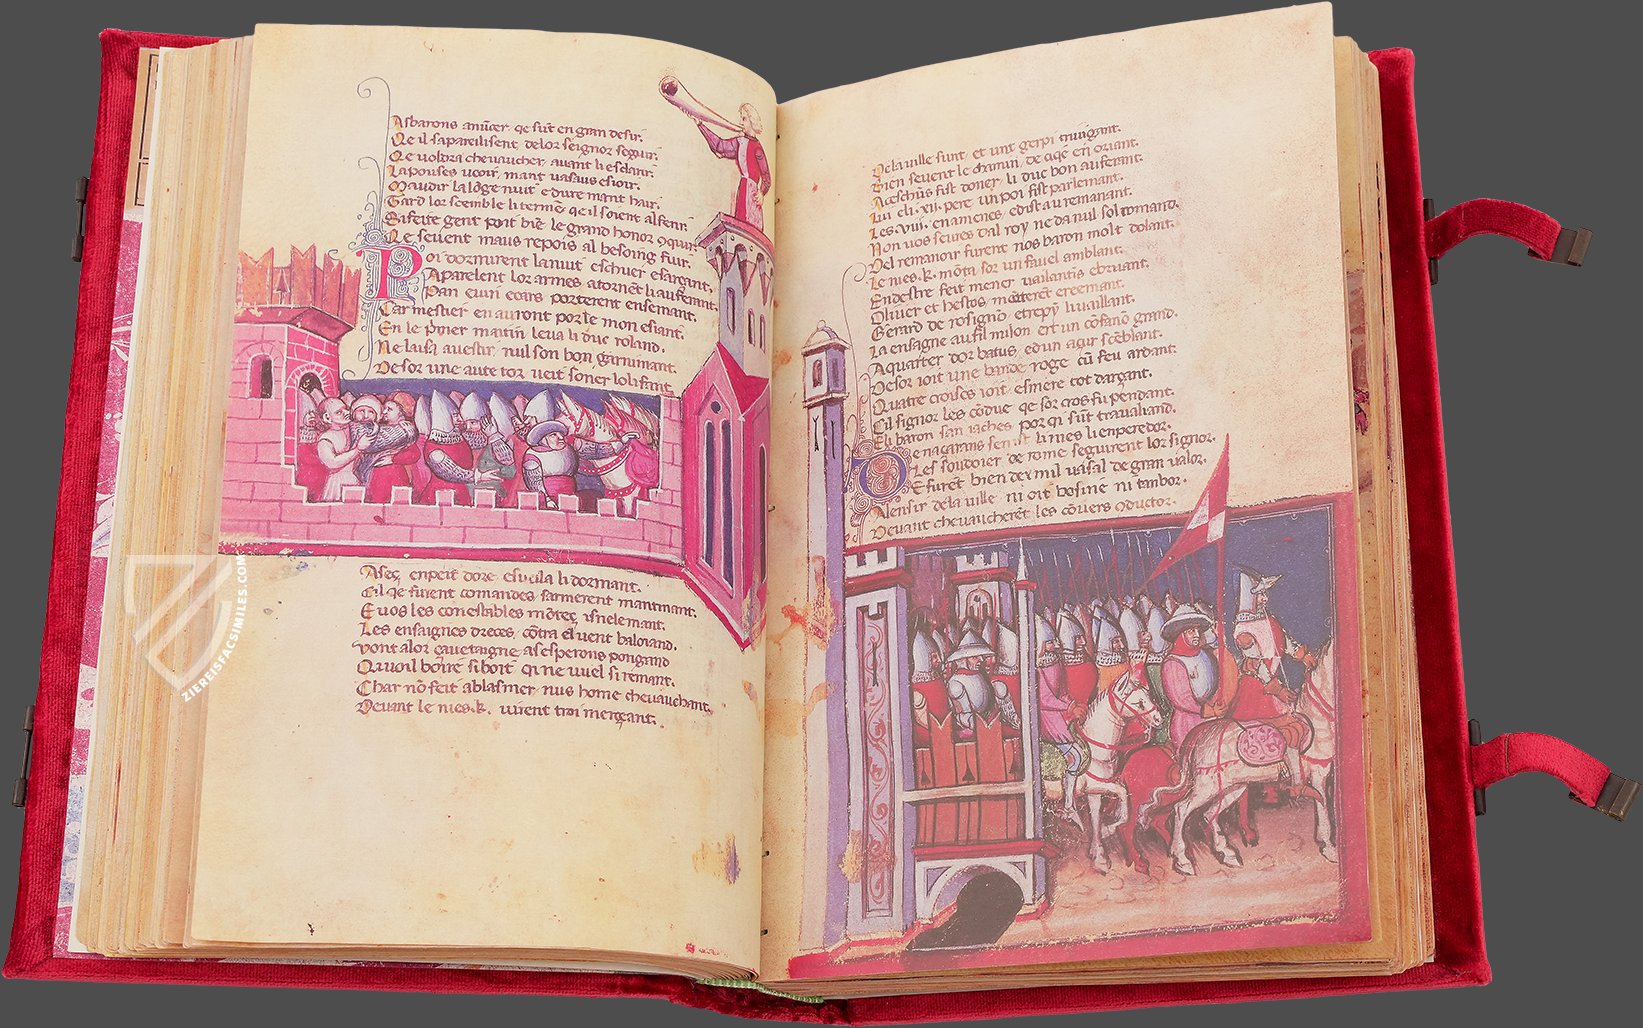 Asbarons anũcer qe sũt en gran desir.
Qe il sapareilisent delor seignor seguir.
Qe voldra chevaucher avant li esclarir.
La pouses veoir mant vasaus esioir.
Maudir la loge nuit e dure mant hair.
Gard lor scemble li termẽ qe il soient al ferir
Si feite gent poit biẽ le grand honor
Qe sevent maus repois al besoing fuir.
Poi dormirent la nuit eschuer e sargant.
Aparelent lor armes atornẽt li auferant.
Pan e vin e cars porterent ensemant.
Car mestier en auront por le mon esiant.
En le primer matin leva li duc roland.
Ne laisa avestir nul son bon garnimant.
Desor une aute tor veit soner lolifant
Aseç enpeit dore esveila li dormant.
Cil qe furent comandes sarmerent mantinant.
E vos les conestables mõteç isnelemant.
Les ensaignes dreces cõtra el vent baloiand.
Vont alor cavetaigne as esperons pongand
Qi voil boire si boit qi ne vuel si remant.
Char nõ feit ablasmer nus home chevauchant.
Devant le nies .k. virent troi merçant.
De la ville sunt et unt gerpi
Bien sevent le chamin de oriant.
li duc bon auferant.
Lui eli .xii. pere un poi fist parlemant.
Les enamenes e dist au remanant.
Non vos seures dal roy ne da nul sol comand.
Del remanoir furent nos baron molt dolant.
Le nies .k. mõta sor un favel amblant.
En destre feit mener vailantif e bruant.
Oliver et hestos mõterẽt ereemant.
Gerard de rosignõ et repy li vaillant.
La ensagne au fil milon ert un cõfanõ grand.
A quarter dor batus e d un açur scẽblant.
Desor voit une bande roge cũ feu ardant.
Quatre croises voit esmere tot darçant.
Cil signor les cõdue qe sor cros fu pendant.
Eli baron san iaches por qi sũt travaliand.
li nies li enperedor.
Les soudoier de rome seguirent lor signor.
E furẽt bien dex mil vasal de gran valor.
Alensir dela ville ni oit bosine ni tambor.
Devant chevaucherẽt les cõvers conductor.
ZIEREISFACSIMILES.COM